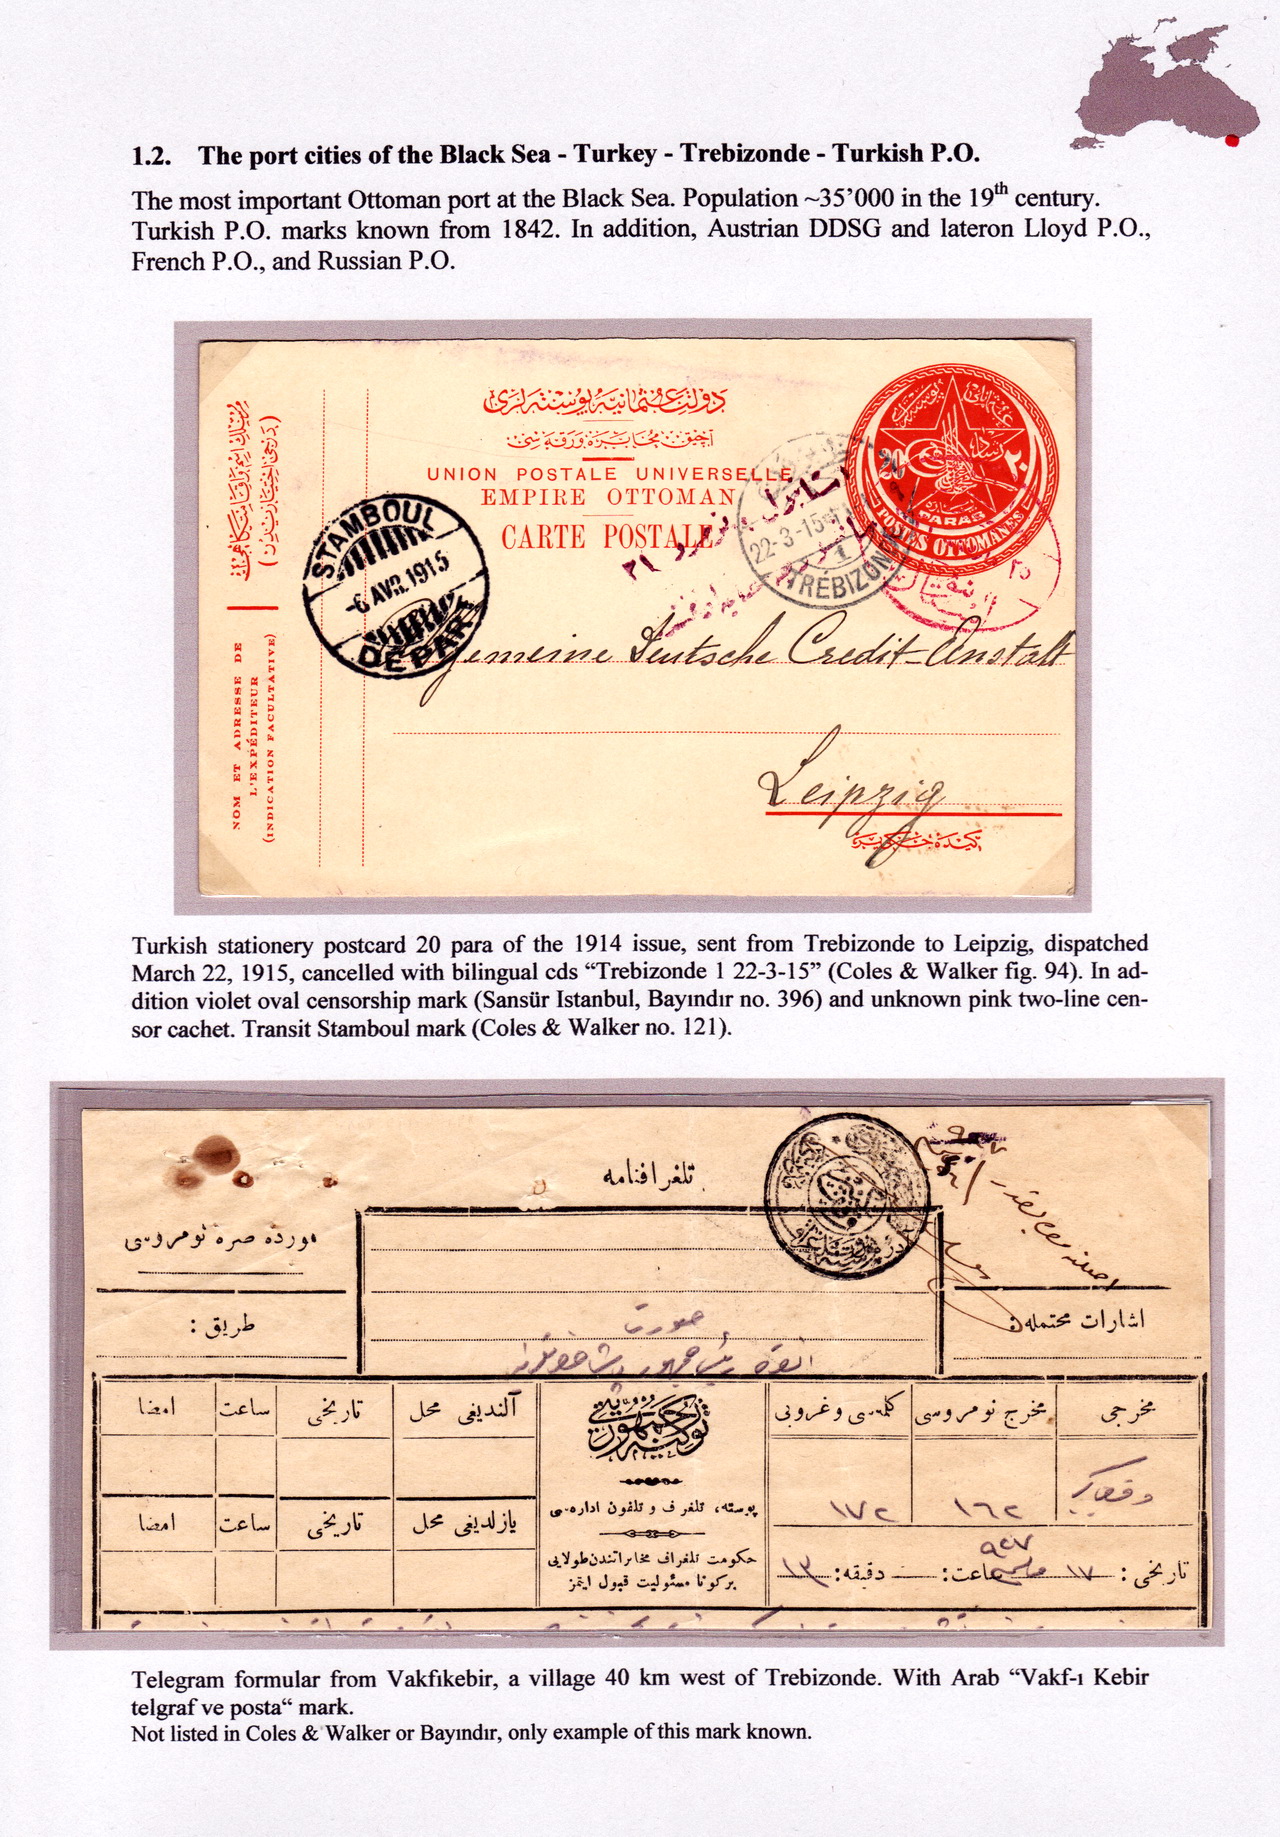 1.2. The port cities of the Black Sea - Turkey - Trebizonde - Turkish P.O.
The most important Ottoman port at the Black Sea. Population ~35’000 in the 19th century.
Turkish P.O. marks known from 1842. In addition, Austrian DDSG and lateron Lloyd P.O.,
French P.O., and Russian P.O.
دولت عثمانیه پوسته لری
آچیق مخابره ورقه سی
UNION POSTALE UNIVERSELLE
EMPIRE OTTOMAN
CARTE POSTALE
20 ٢٠
PARAS
POSTES OTTOMANES
22-3-15
1
TRÉBIZON
STAMBOUL
-6 AVR 1915
DEPART
NOM ET ADRESSE DE
L'EXPÉDITEUR
(INDICATION FACULTATIVE)
gemeine Deutsche Credit-Anstalt
Leipzig
Turkish stationery postcard 20 para of the 1914 issue, sent from Trebizonde to Leipzig, dispatched
March 22, 1915, cancelled with bilingual cds “Trebizonde 1 22-3-15” (Coles & Walker fig. 94). In ad-
dition violet oval censorship mark (Sansür Istanbul, Bayındır no. 396) and unknown pink two-line cen-
sor cachet. Transit Stamboul mark (Coles & Walker no. 121).
تلغرافنامه
مورده صره نومروسی
طریق :
اشارات محتمله
صورت
مخرجی
مخرج نومروسی
كلمه سی و غروبی
آلندیغی محل
تاریخی
ساعت
امضا
١٦٢
١٧٢
پوسته، تلغراف و تلفون اداره سی
یازلدیغی محل
تاریخی
ساعت
امضا
حكومت تلغراف مخابراتندن طولایی
بركونا مسئولیت قبول ایتمز
تاریخی : ١٧ ساعت: دقیقه: ١٣
Telegram formular from Vakfıkebir, a village 40 km west of Trebizonde. With Arab “Vakf-ı Kebir
telgraf ve posta“ mark.
Not listed in Coles & Walker or Bayındır, only example of this mark known.